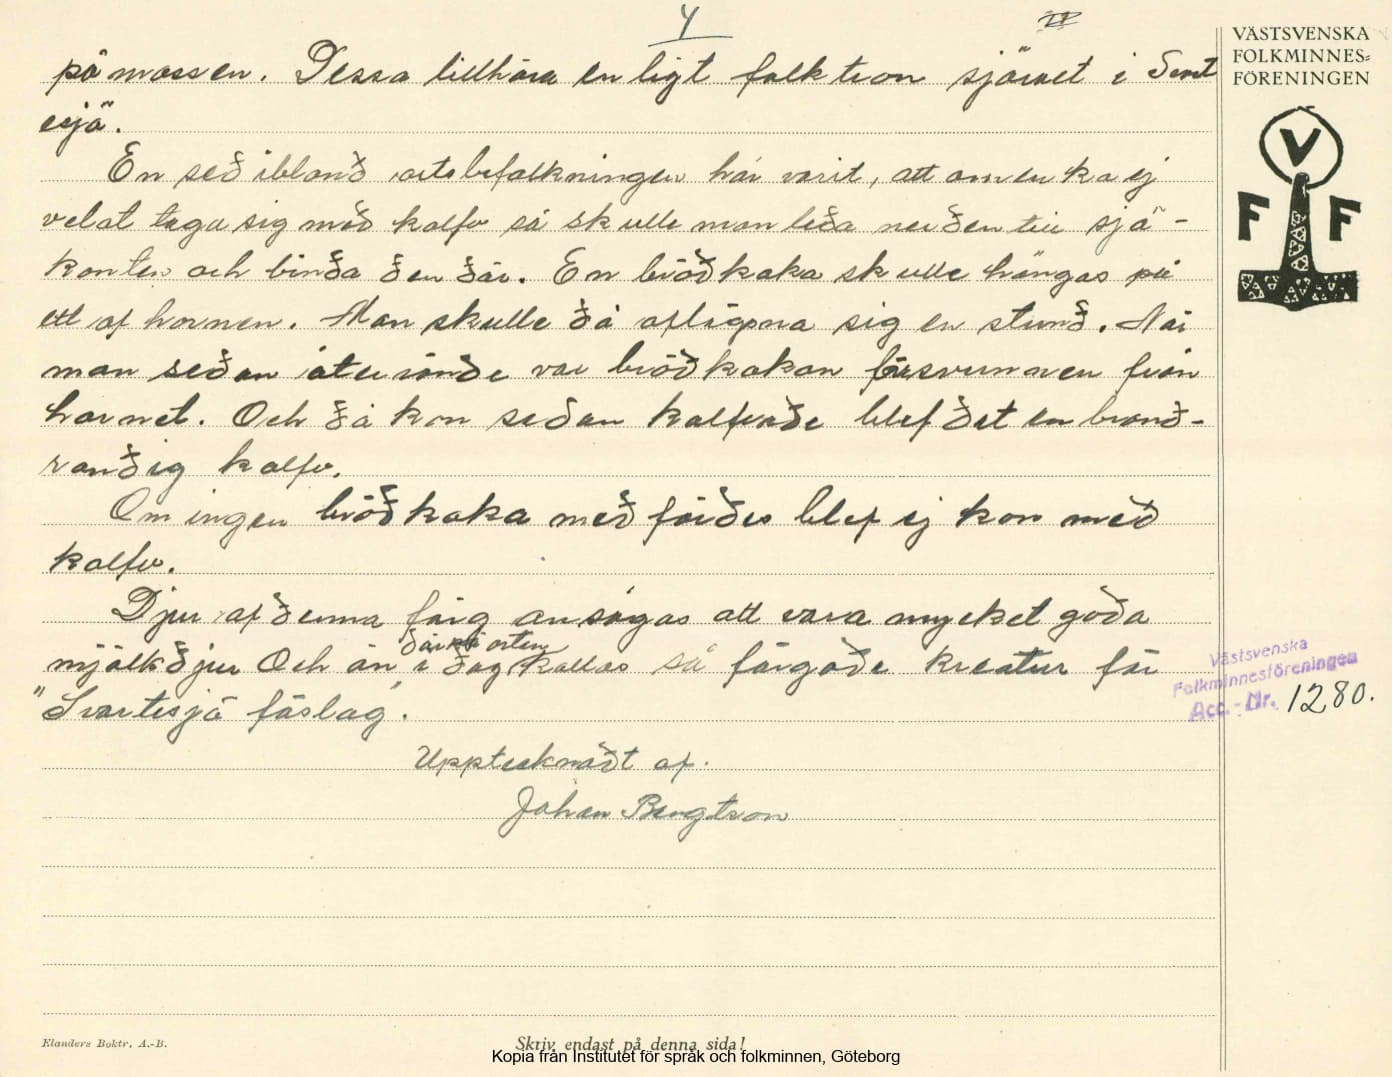 4
II
VÄSTSVENSKA
FOLKMINNES=
FÖRENINGEN
V
F F
på mossen. Dessa tillhöra enligt folktron sjörået i Svart
esjö.
En sed ibland ortsbefolkningen har varit, att om en ko ej
velat taga sig med kalfv så skulle man leda ned den till sjö-
kanten och binda den där. En brödkaka skulle hängas på
ett af hornen. Man skulle då aflägsna sig en stund. När
man sedan återvände var brödkakan försvunnen från
hornet. Och då kon sedan kalfvade blef det en brand-
randig kalfv.
Om ingen brödkaka medfördes blef ej kon med
kalfv.
Djur af denna färg ansågas att vara mycket goda
där på orten
mjölkdjur Och än i dag kallas så färgade kreatur för
"Svartesjö föslag.
Upptecknadt af.
Johan Bengtson
Västsvenska
Folkminnesföreningen
Acc.-Nr. 1280.
Elanders Boktr. A.-B.
Skriv endast på denna sida!
Kopia från Institutet för språk och folkminnen, Göteborg